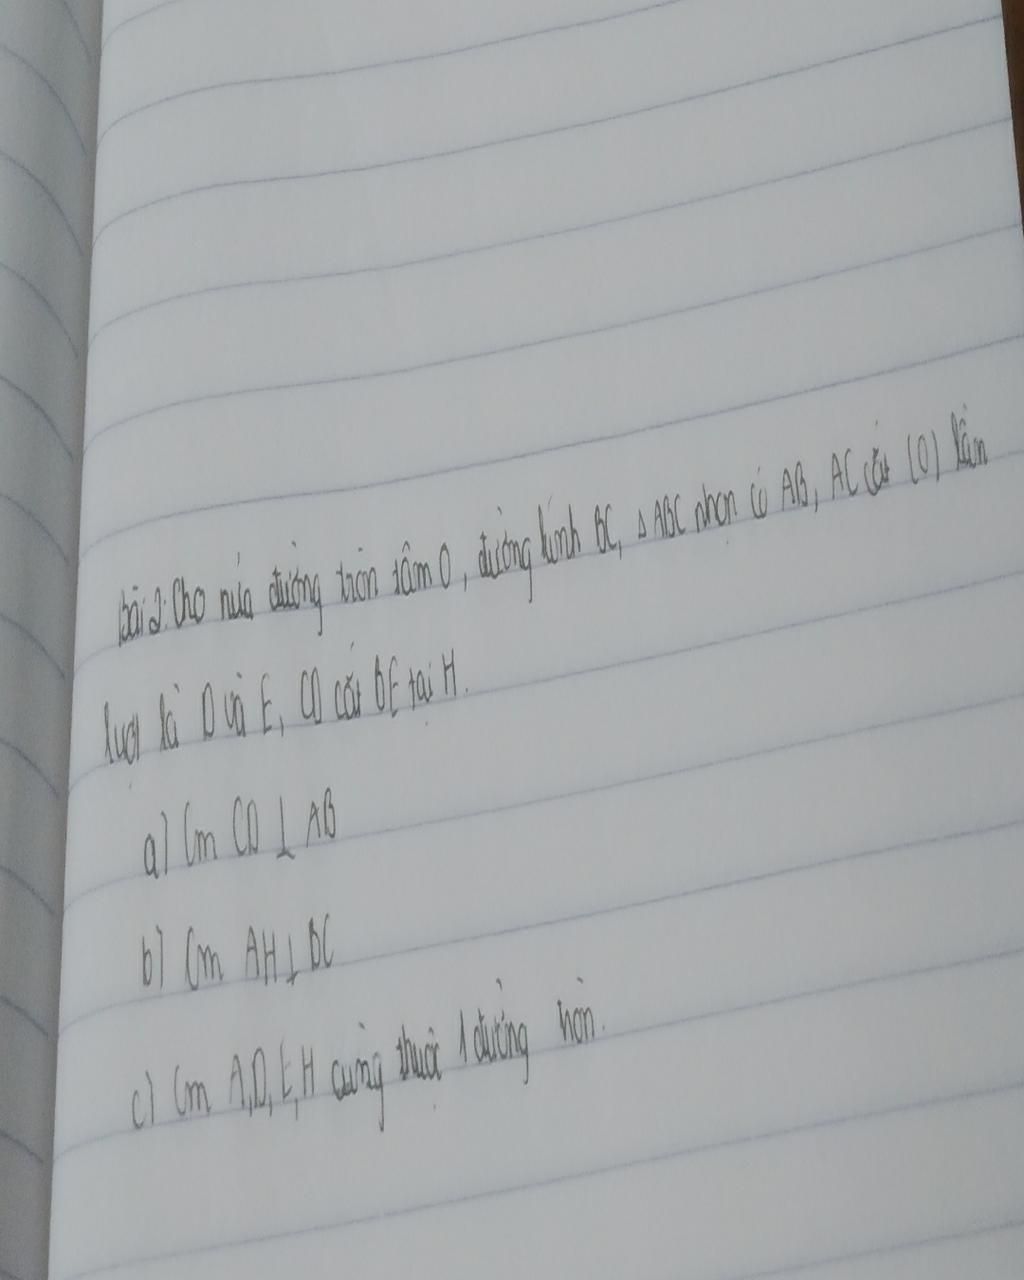 Bài 2: Cho nửa đường tròn tâm O, đường kính BC, Δ ABC nhọn có AB, AC cắt (O) lần
lượt là D và E, CD cắt BE tại H.
a) Cm CD ⊥ AB
b) Cm AH ⊥ BC
c) Cm A,D,E,H cùng thuộc 1 đường tròn.